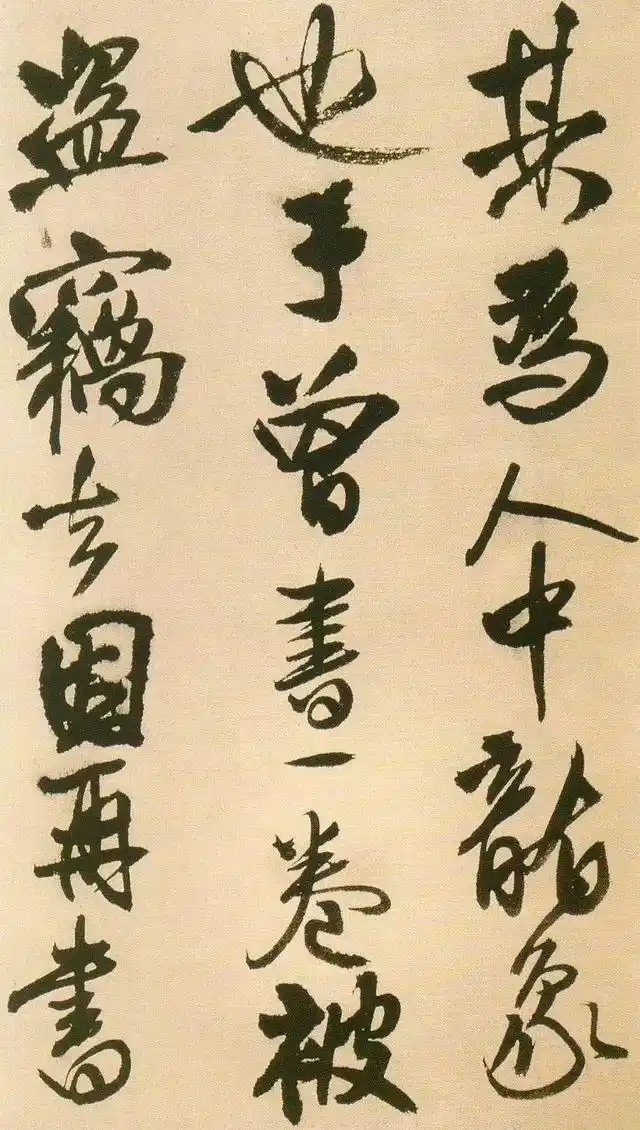 某為人中龍象
也予曾書一卷被
盗竊去因再書